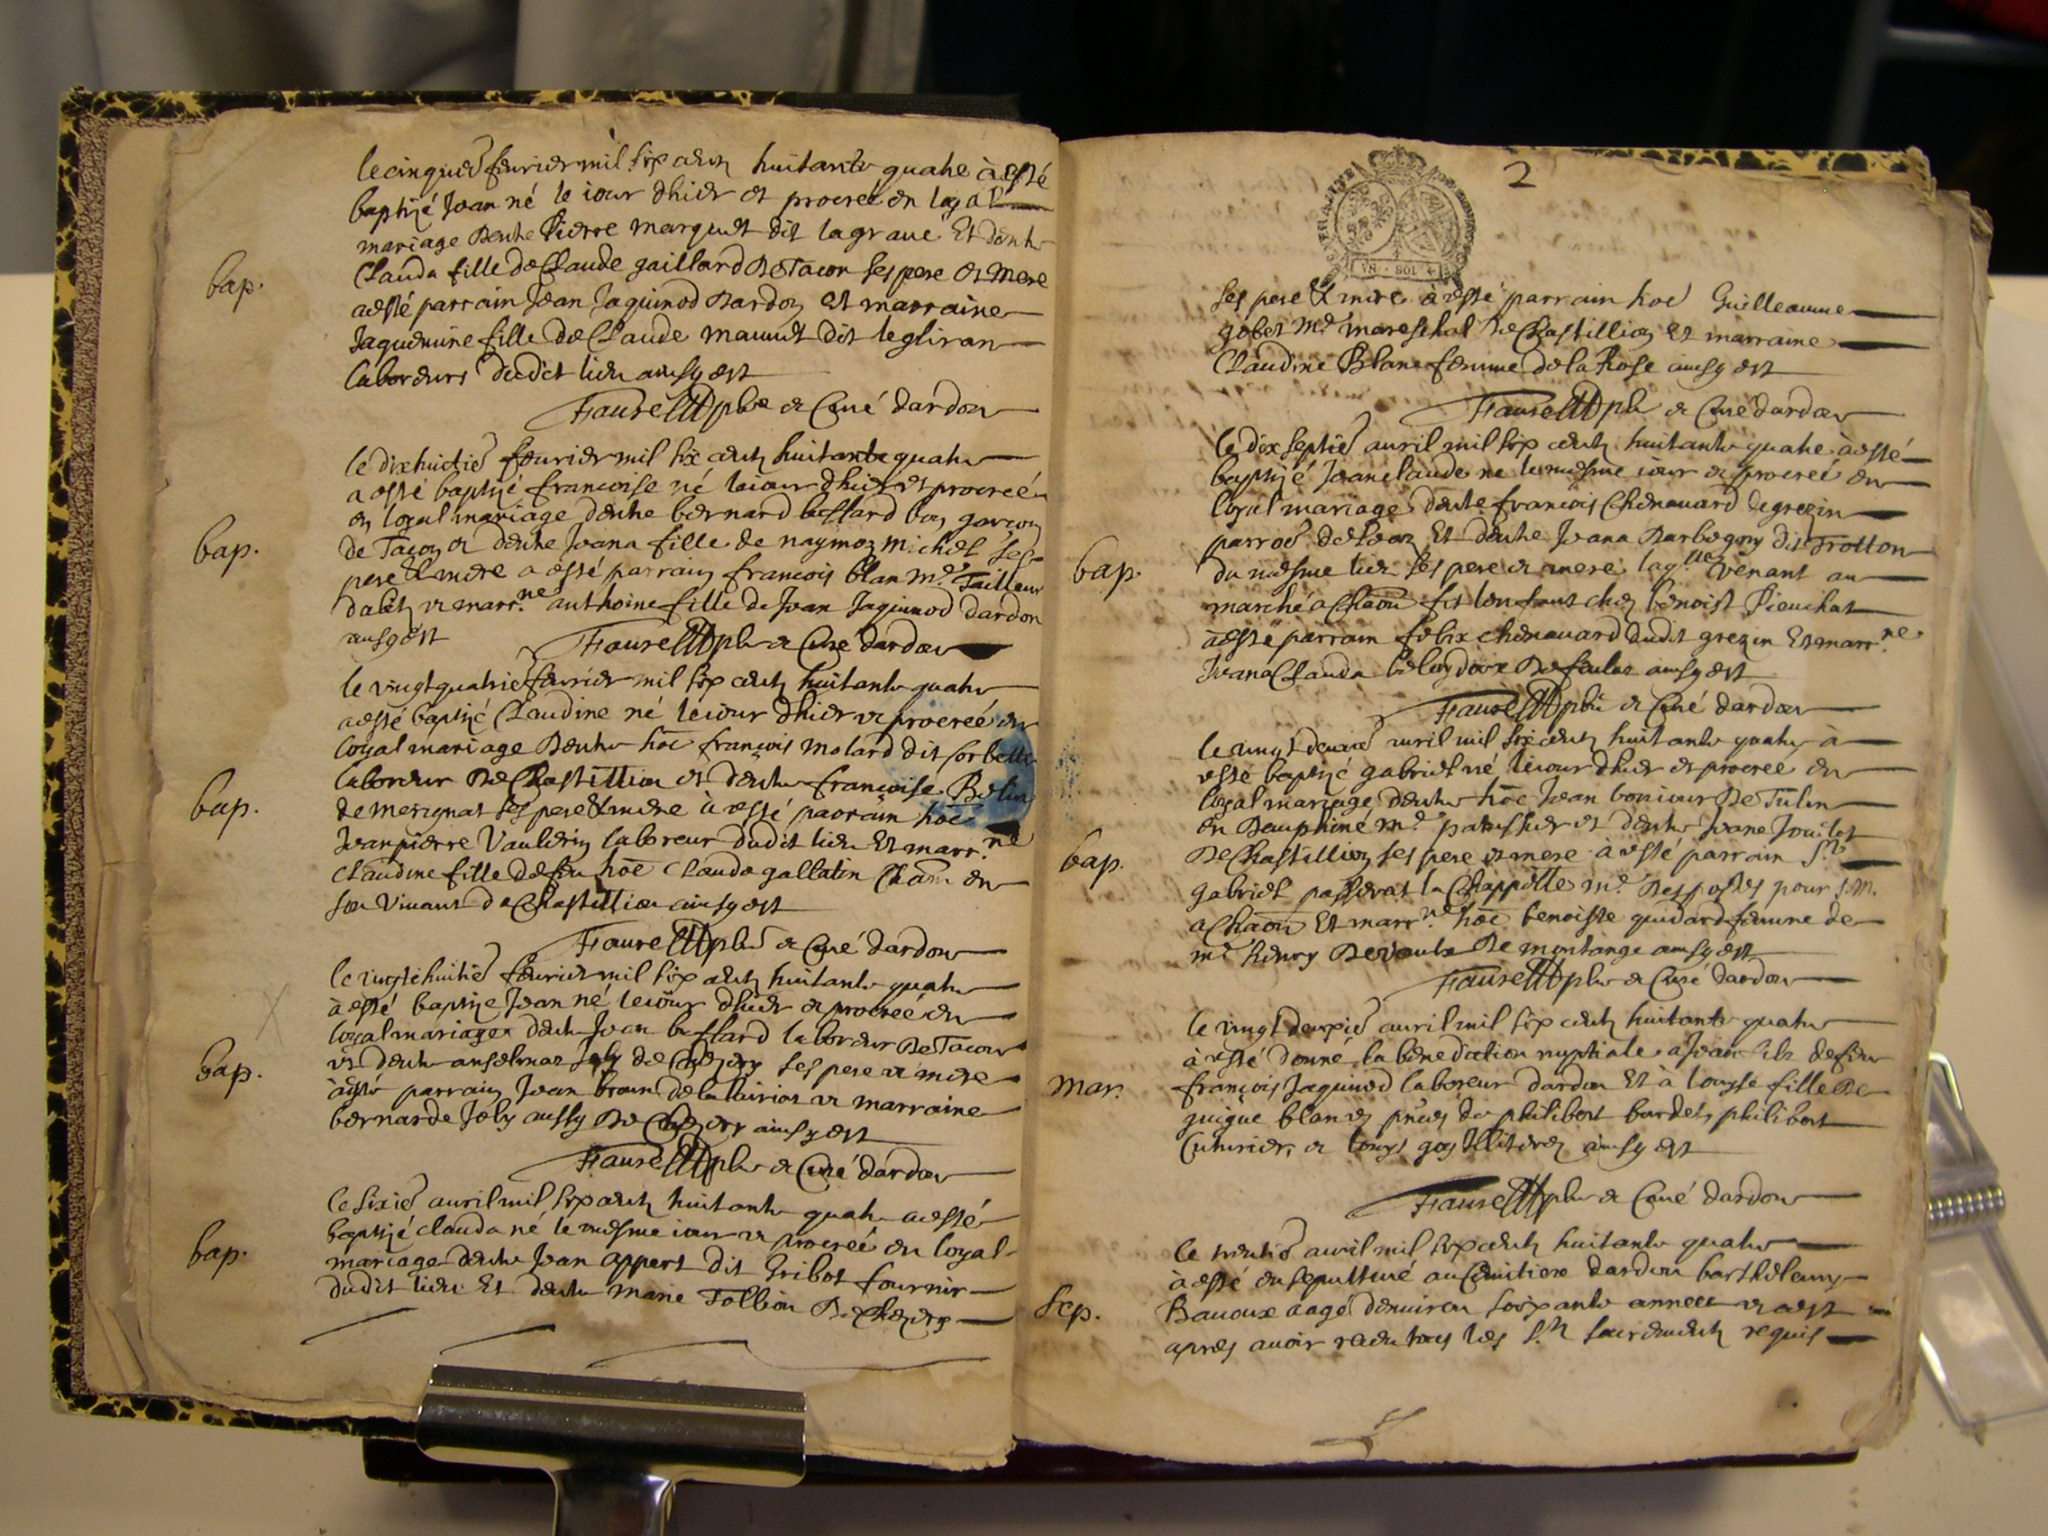 le cinquie fevrier mil six cents huitante quatre à esté
baptizé Jean né le iour d'hier et procreé en loyal
mariage dentre Pierre marquet dit la grave Et dentre
Clauda fille de Claude gaillard De Tacon ses pere et mere
a esté parrain Jean Jaquinod Dardon Et marraine
Jaquemine fille de Claude mauuet dit
laboreurs dudict lieu ainsy est
Faure pbre et Curé dardon
bap.
le dixhuictie fevrier mil six cents huitante quatre
a esté baptizé francoise né le iour dhier et procreé
en loyal mariage dentre bernard bussard
de Tacon et dentre Jeana fille de naymoz michel ses
pere & mere a esté parrain francois blan me Tailleur
et marr.ne anthoine fille de Jean Jaquinod dardon
ainsy est Faure pbre et Curé dardon
bap.
le vingt quatrie fevrier mil six cents huitante quatre
a esté baptizé Claudine né le iour dhier et procreé en
loyal mariage Dentre hoe françois molard dit sorbette
laboreur De Chastillion et dentre françoise Belin
de merignat ses pere & mere à esté parrain hoe
Jean pierre Vaulerin laboreur dudit lieu Et marr.ne
Claudine fille de feu hoe Claude gallatin en
son vivant de Chastillion ainsy est
Faure pbre et Curé dardon
bap.
le vingt huitie fevrier mil six cents huitante quatre
à esté baptize Jean né le iour dhier et procreé en
loyal mariage dentre Jean bussard laboreur De Tacon
et dentre anselmaz Joly de Chezery ses pere et mere
à esté parrain Jean brun et marraine
bernarde Joly aussy De Chezery ainsy est
Faure pbre et Curé dardon
bap.
le sixie auril mil six cents huitante quatre a esté
baptizé clauda né le mesme iour et procreé en loyal
mariage dentre Jean appert dit Gribot fournier
dudit lieu Et dentre marie Tollion De Chezery
bap.
2
ses pere & mere à esté parrain hoe Guilleaume
gobet me mareschal De Chastillion Et marraine
Claudine Blanc femme de la Rose ainsy est
Faure pbre et Curé dardon
le dix septie auril mil six cents huitante quatre à esté
baptizé Jean claude né le mesme iour et procreé en
loyal mariage dentre françois Chenauard de grezin
parroe de Leaz Et dentre Jeana Barbegon dit Trotton
du mesme lieu ses pere et mere laq.lle venant au
marché a Chaon fit lenfant chez benoist Pieuchat
à esté parrain felix chenauard dudit grezin Et marr.ne
Jeana Clauda ainsy est
Faure pbre et Curé dardon
bap.
le vingt deuxie auril mil six cents huitante quatre à
esté baptizé gabriel né le iour dhier et procreé en
loyal mariage dentre hoe Jean boniour De Tulin
en Dauphiné me patissier et dentre Jeane Jouilot
De Chastillion ses pere et mere a esté parrain Sr
gabriel passerat la Chappelle me Des postes pour S.M.
a Chaon Et marr.ne hoe benoiste guidard femme de
me henry Devaulx De montange ainsy est
Faure pbre et Curé dardon
bap.
le vingt deuxie auril mil six cents huitante quatre
à esté donné la benediction nuptiale à Jean fils de feu
françois Jaquinod laboreur dardon Et à louyse fille De
guigue blanc pñces de philibert bardet, philibert
Cuturier, et louys goy Illiterez ainsy est
Faure pbre et Curé dardon
mar.
le trentie auril mil six cents huitante quatre
à esté ensepulturé au Cimitiere dardon barthelemy
Bauoux aagé denuiron soixante annees et est
apres auoir receu tous les Sts sacrements requis
Sep.